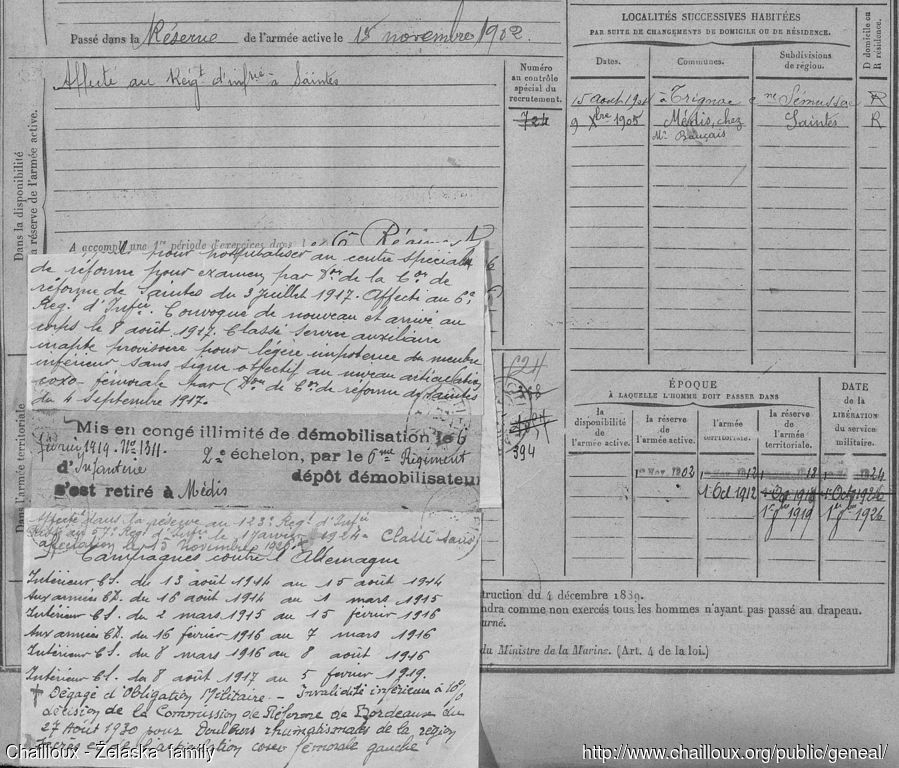 Passé dans la Réserve de l'armée active le 1er novembre 1902.
Affecté au Régt d'infie à Saintes
Dans la disponibilité
la réserve de l'armée active.
Numéro
au contrôle
spécial du
recrutement.
724
LOCALITÉS SUCCESSIVES HABITÉES
PAR SUITE DE CHANGEMENTS DE DOMICILE OU DE RÉSIDENCE.
D domicile ou
R résidence.
Dates. Communes. Subdivisions
de région.
15 août 1901 à Trignac Sémussac R
9 Xbre 1905 Médis, chez Saintes R
Mr
A accompli une 1re période d'exercices dans le 6e Régiment
pour hospitaliser au centre spécial
de réforme pour examen, par Don de la Con de
réforme de Saintes du 3 Juillet 1917. Affecté au 6e
Reg. d'Infie. Convoqué de nouveau et arrivé au
corps le 8 août 1917. Classé service auxiliaire
inapte provisoire pour légère impotence du membre
inférieur sans signe objectif au niveau articulation
coxo-fémorale par Don de Con de réforme de Saintes
du 4 Septembre 1917.
Dans l'armée territoriale
624
394
Mis en congé illimité de démobilisation le 6
février 1919. No 1311.
2e échelon, par le 6me Régiment
d'Infanterie dépôt démobilisateur
s'est retiré à Médis
Affecté dans la réserve au 123e Reg. d'Infie
le 1 Janvier 1924. Classé sans
affectation le 15 Novembre
Campagnes contre l'Allemagne
Intérieur CS. du 13 août 1914 au 15 août 1914
Aux armées CD. du 16 août 1914 au 1 mars 1915
Intérieur CS. du 2 mars 1915 au 15 février 1916
Aux armées CD. du 16 février 1916 au 7 mars 1916
Intérieur CS. du 8 mars 1916 au 8 août 1916
Intérieur CS. du 8 août 1917 au 5 février 1919.
† Dégagé d'Obligation Militaire - Invalidité inférieure à 10%
décision de la Commission de Réforme de Bordeaux du
27 Août 1930 pour Douleurs rhumatismales de la région
et de l'articulation coxo fémorale gauche
ÉPOQUE
À LAQUELLE L'HOMME DOIT PASSER DANS
DATE
de la
LIBÉRATION
du service
militaire.
la
disponibilité
de l'armée active.
la réserve
de
l'armée active.
l'armée
territoriale.
la réserve
de
l'armée
territoriale.
1er Nov. 1902
1 Oct 1912
1919
1926
struction du 4 décembre 1889.
ndra comme non exercés tous les hommes n'ayant pas passé au drapeau.
ourné.
du Ministre de la Marine. (Art. 4 de la loi.)
Chailloux - Zelaska family
http://www.chailloux.org/public/geneal/